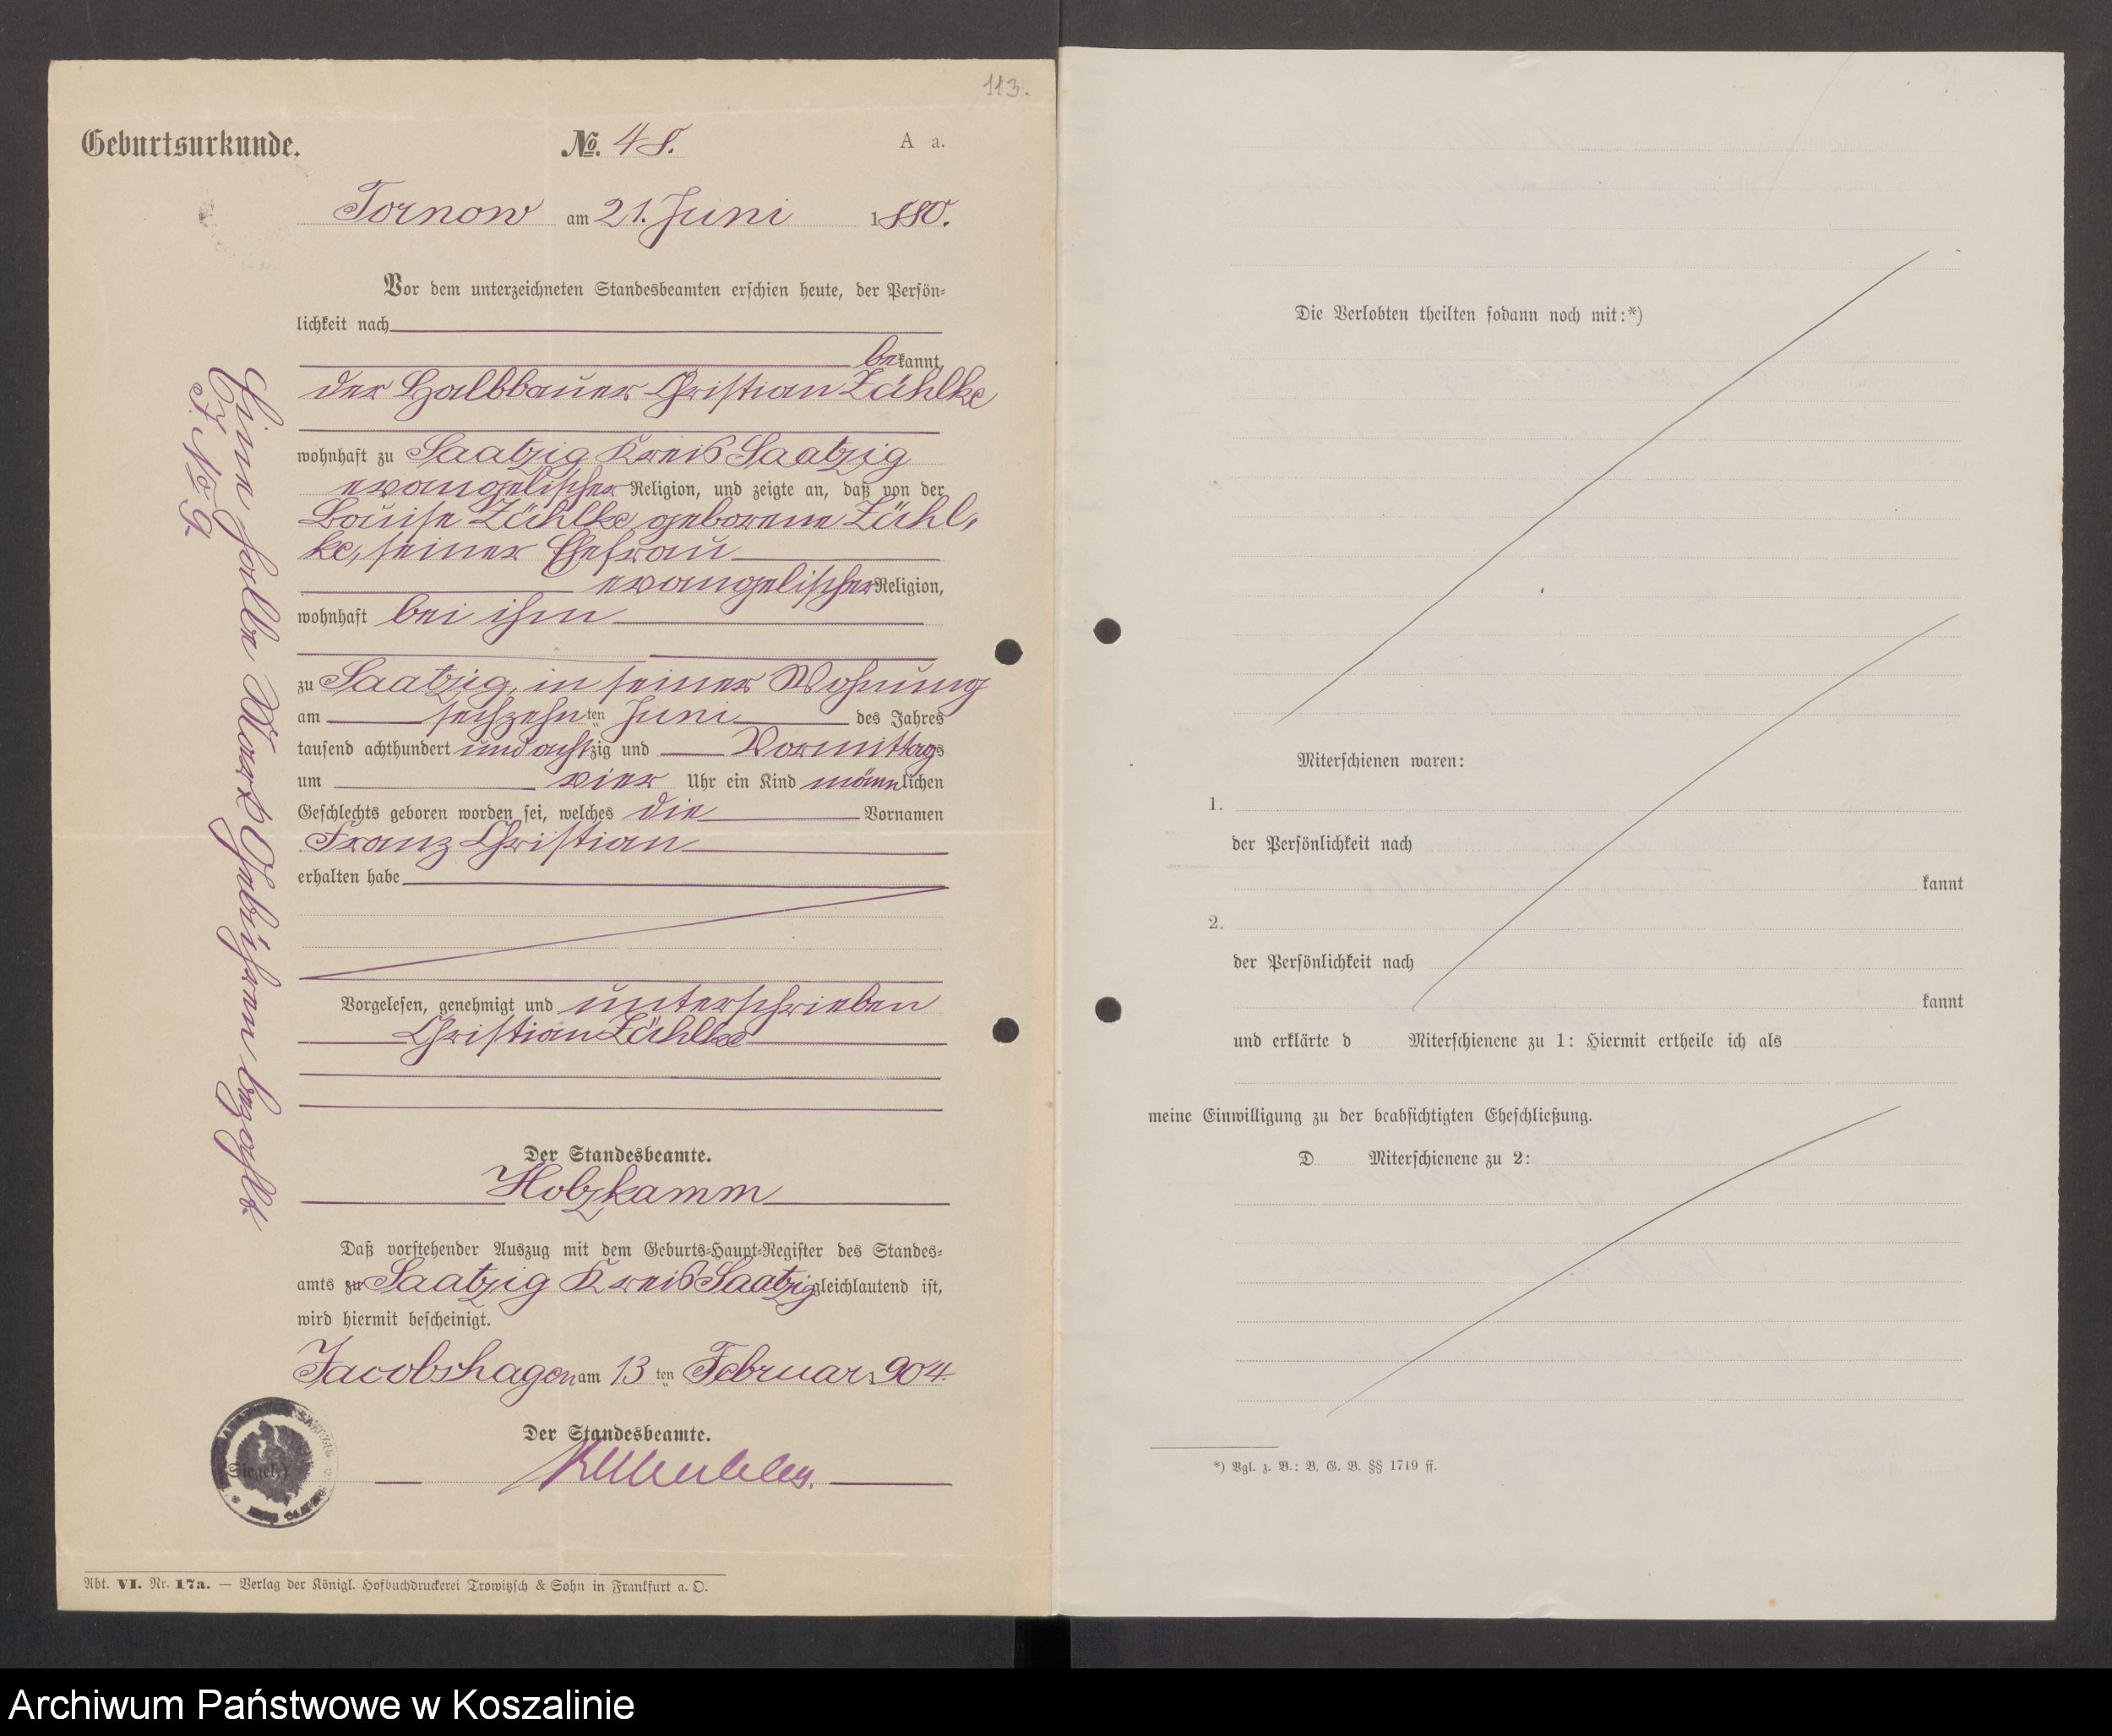 113.
Geburtsurkunde.
No. 48.
A a.
Tornow am 21. Juni 1880.
Vor dem unterzeichneten Standesbeamten erschien heute, der Persön-
lichkeit nach
bekannt,
der Halbbauer Christian Zühlke
wohnhaft zu Saatzig Kreis Saatzig
evangelischer Religion, und zeigte an, daß von der
Louise Zühlke geborene Zühl-
ke, seiner Ehefrau
evangelischer Religion,
wohnhaft bei ihm
zu Saatzig, in seiner Wohnung
am sechzehnten Juni des Jahres
tausend achthundert und achtzig und Vormittags
um vier Uhr ein Kind männlichen
Geschlechts geboren worden sei, welches die Vornamen
Franz Christian
erhalten habe
Vorgelesen, genehmigt und unterschrieben
Christian Zühlke
Der Standesbeamte.
Holzkamm
Daß vorstehender Auszug mit dem Geburts-Haupt-Register des Standes-
amts zu Saatzig Kreis Saatzig gleichlautend ist,
wird hiermit bescheinigt.
Jacobshagen am 13ten Februar 1904.
Der Standesbeamte.
(Siegel.)
Eine halbe Mark Gebühren bezahlt
J. No 9.
Abt. VI. Nr. 17a. — Verlag der Königl. Hofbuchdruckerei Trowitzsch & Sohn in Frankfurt a. O.
Die Verlobten theilten sodann noch mit:*)
Miterschienen waren:
1.
der Persönlichkeit nach
kannt
2.
der Persönlichkeit nach
kannt
und erklärte d Miterschienene zu 1: Hiermit ertheile ich als
meine Einwilligung zu der beabsichtigten Eheschließung.
D Miterschienene zu 2:
*) Vgl. z. B.: B. G. B. §§ 1719 ff.
Archiwum Państwowe w Koszalinie